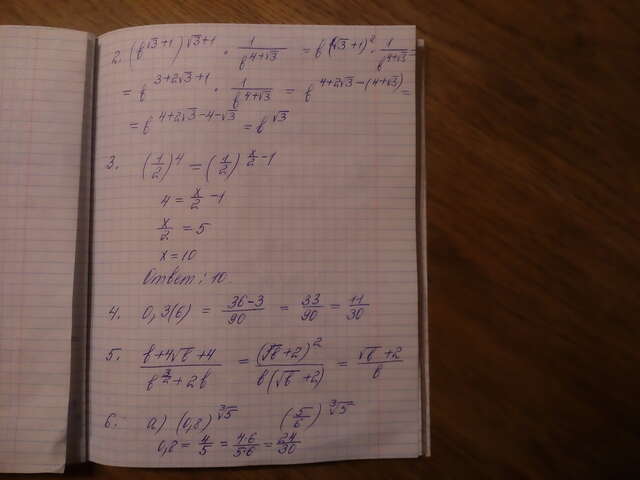 2. (b^(√3+1))^(√3+1) · 1/b^(4+√3) = b^((√3+1)^2) · 1/b^(4+√3) =
= b^(3+2√3+1) · 1/b^(4+√3) = b^(4+2√3-(4+√3)) =
= b^(4+2√3-4-√3) = b^(√3)
3. (1/2)^4 = (1/2)^(x/2-1)
4 = x/2 - 1
x/2 = 5
x = 10
Ответ: 10.
4. 0,3(6) = (36-3)/90 = 33/90 = 11/30
5. (b+4√b+4)/(b^(3/2)+2b) = (√b+2)^2/(b(√b+2)) = (√b+2)/b
6. а). (0,8)^(∛5) (5/6)^(∛5)
0,8 = 4/5 = 4·6/5·6 = 24/30